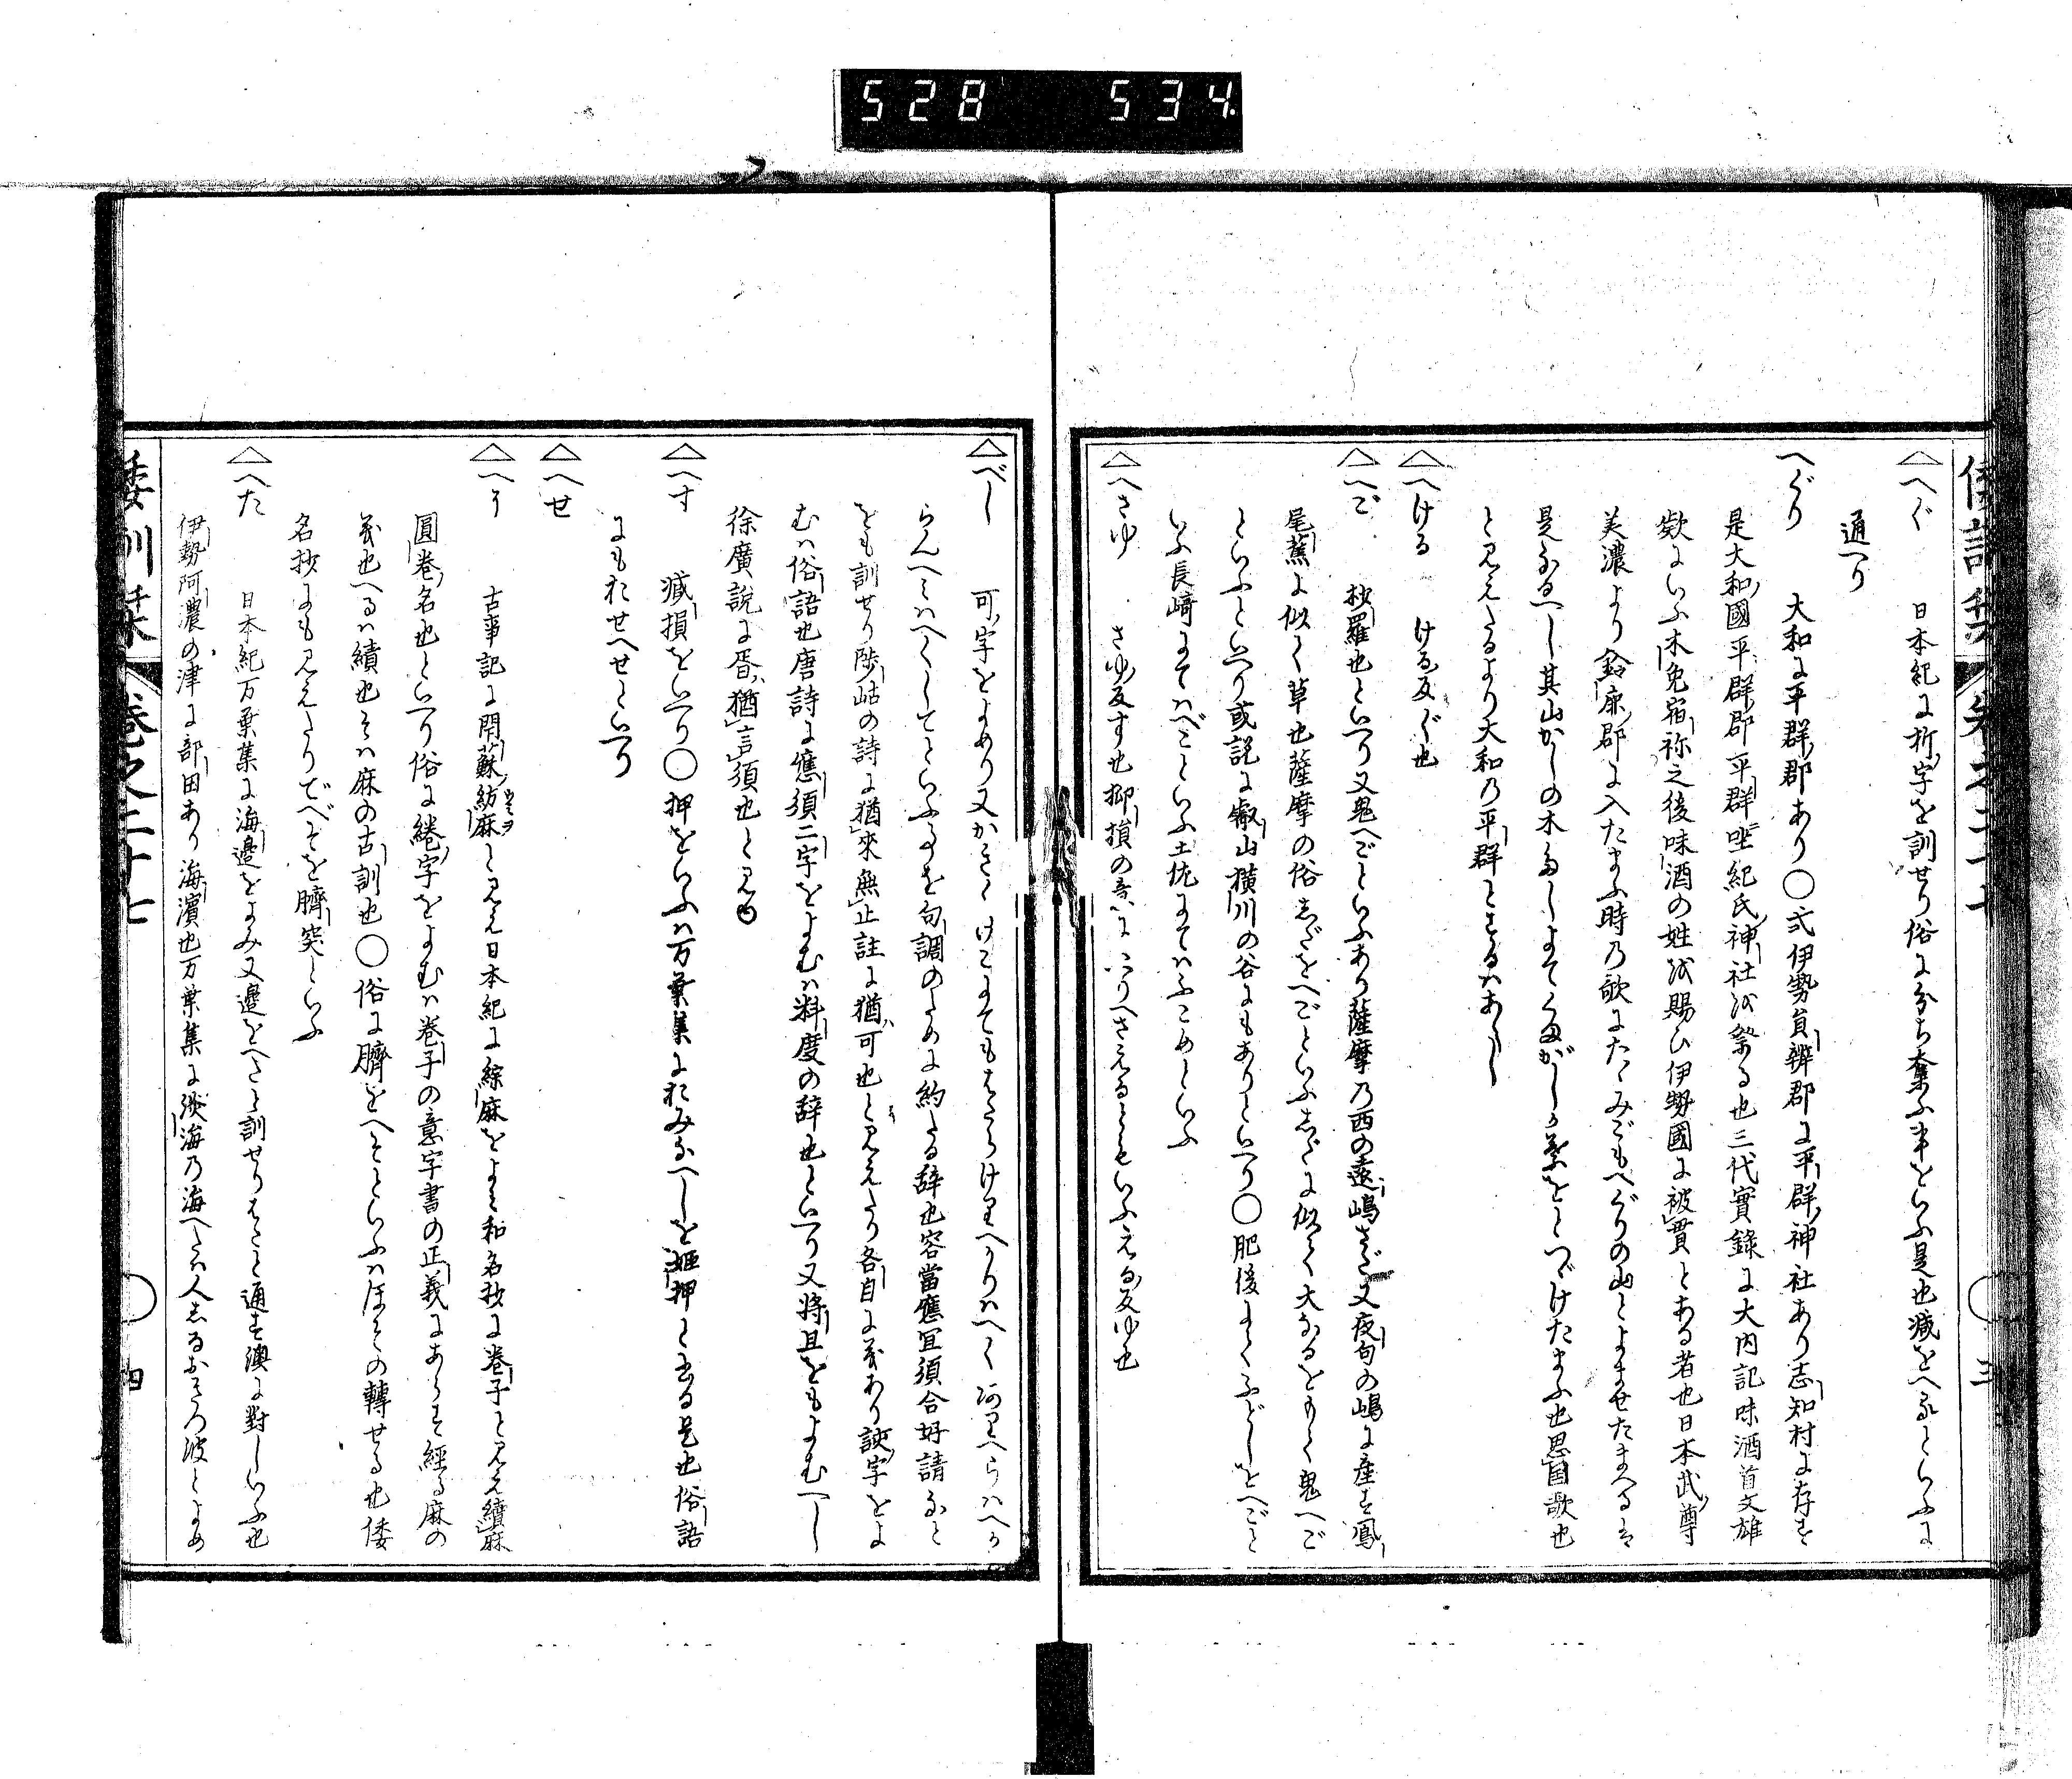 528 534
倭訓栞 卷之二十七 三
△へぐ 日本紀に折字を訓せり俗に分ち奪ふ事をいふ是也減をへるといふに
通へり
へぐり 大和に平群郡あり○式伊勢員辨郡に平群神社あり志知村に存す
是大和國平群郡平群坐紀氏神社を祭る也三代實錄に大内記味酒首文雄
欵にいふ木兎宿祢之後味酒の姓を賜ひ伊勢國に被貫とある者也日本武尊
美濃より鈴鹿郡に入たまふ時の歌にたゝみごもへぐりの山とよませたまへるは
是なるへし其山かしの木多しよてくまがしが葉をとつゞけたまふ也思國歌也
と見えたるより大和の平群とするはあし
△へける けるる反ぐ也
△へご 桫羅也といへり又鬼へごといふあり薩摩の西の遠嶋きど又夜句の嶋に産す鳳
尾蕉に似て草也薩摩の俗しだをへごといふしだに似て大なるをもて鬼へご
といふといへり或説に叡山横川の谷にもありといへり○肥後にてふどしをへごと
いふ長崎にてはべこといふ土佐にてはふこめといふ
△へさゆ さゆ反す也抑損の音にいりへさえるともいふえる反ゆ也
△べし 可字をよめり又かさく けにてもすらけりへりはへく 阿りへらはへか
らんへきはへくしてといふ事を句調のために約たる辞也容當應宜須合好請なと
をも訓せり陟岵の詩に猶來無止註に猶ハ可也と見えたり各自に義あり訣字をよ
むハ俗語也唐詩に應須二字をよむハ料度の辞也といへり又將且をもよむへし
徐廣説に胥ハ猶言須也と見ゆ
△へす 減損をいへり○押をいふハ万葉集にをみなへしを姫押と書る是也俗語
にもおせへせといへり
△へせ
△へそ 古事記に閇蘇紡麻と見え日本紀に綜麻をよみ和名抄に卷子と見え續麻
圓卷名也といへり俗に綣字をよむハ卷子の意字書の正義にあらす經る麻の
義也へるハ績也そハ麻の古訓也○俗に臍をへそといふハほその轉せる也倭
名抄にも見えたりでべそを臍突といふ
△へた 日本紀万葉集に海邊をよみ又邊をへたと訓せりはたと通す澳に對しいふ也
伊勢阿濃の津に部田あり海濱也万葉集に淡海の海へたハ人しるおきつ波とよめ
倭訓栞 卷之二十七 四